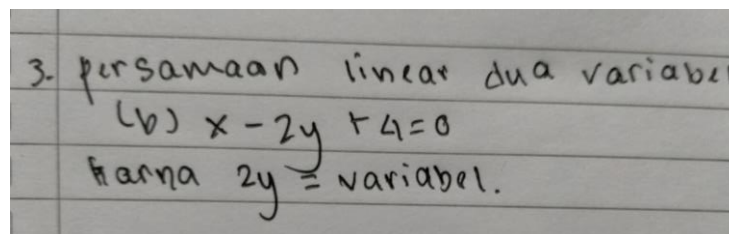 3. persamaan linear dua variabel
(b) x - 2y + 4 = 0
karna 2y = variabel.